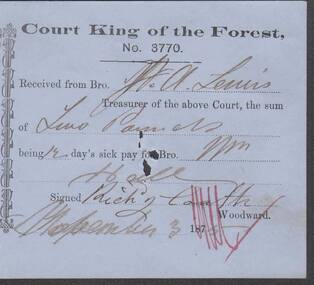 Court King of the Forest,
No. 3770.
Received from Bro. A. Lewis
Treasurer of the above Court, the sum
of Two Pounds
being 12 day's sick pay for Bro. Wm
Hall
Signed Rich'd
Woodward.
3 187